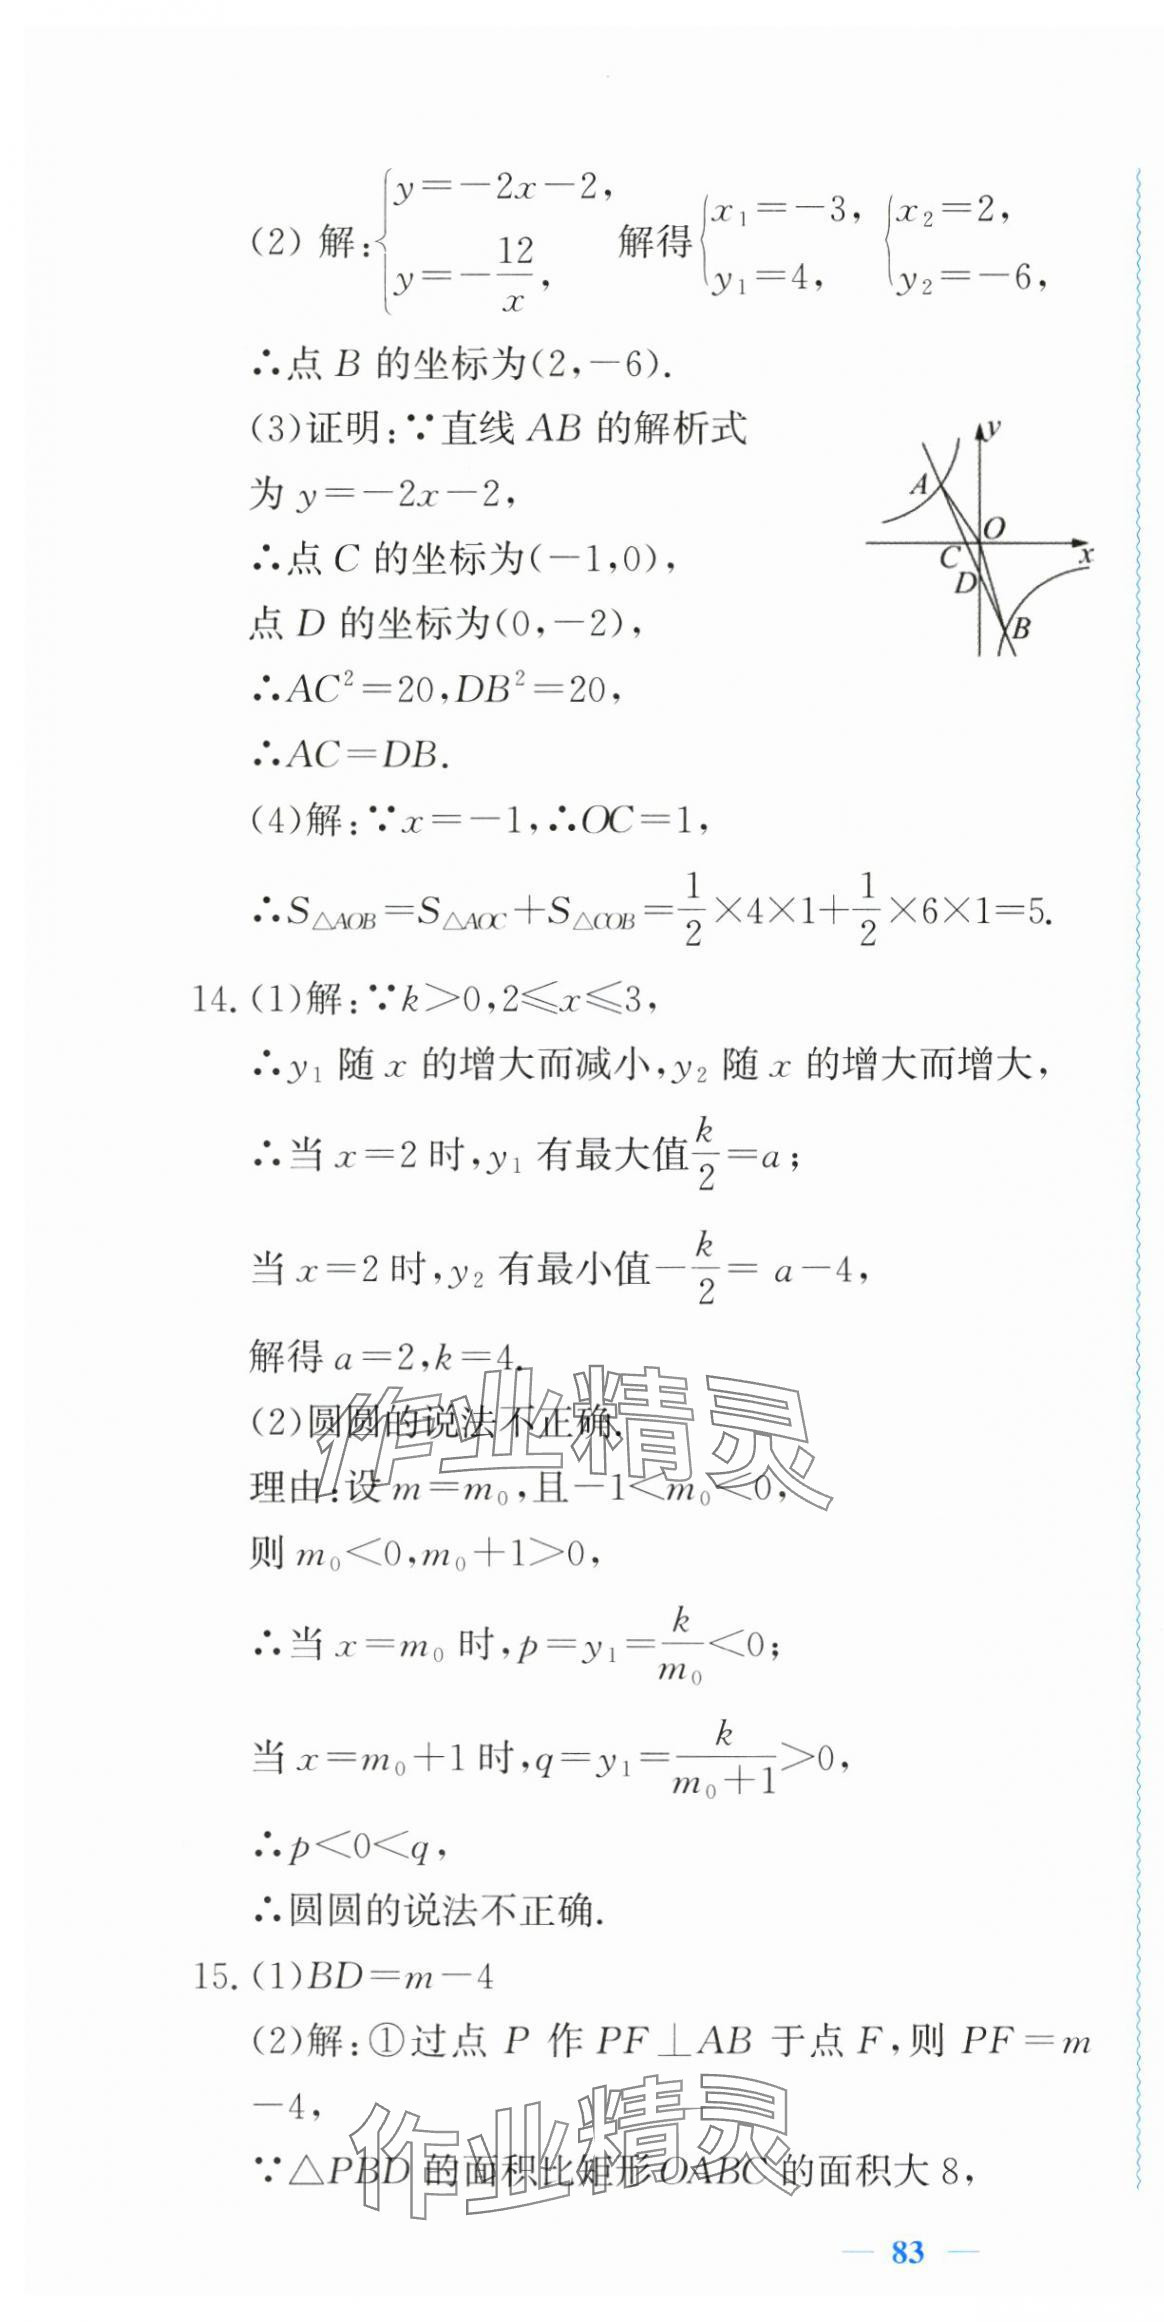 (2) 解:{y=-2x-2, y=-12/x, 解得{x₁=-3, y₁=4, {x₂=2, y₂=-6,
∴点 B 的坐标为(2,-6).
(3)证明:∵直线 AB 的解析式
为 y=-2x-2,
∴点 C 的坐标为(-1,0),
点 D 的坐标为(0,-2),
∴AC²=20,DB²=20,
∴AC=DB.
y
A
O
C
x
D
B
(4)解:∵x=-1,∴OC=1,
∴S△AOB=S△AOC+S△COB=1/2×4×1+1/2×6×1=5.
14. (1)解:∵k>0,2≤x≤3,
∴y₁ 随 x 的增大而减小,y₂ 随 x 的增大而增大,
∴当 x=2 时,y₁ 有最大值k/2=a;
当 x=2 时,y₂ 有最小值-k/2= a-4,
解得 a=2,k=4.
(2)圆圆的说法不正确.
理由:设 m=m₀,且-1<m₀<0,
则 m₀<0,m₀+1>0,
∴当 x=m₀ 时,p=y₁=k/m₀<0;
当 x=m₀+1 时,q=y₁=k/(m₀+1)>0,
∴p<0<q,
∴圆圆的说法不正确.
15. (1)BD=m-4
(2)解:①过点 P 作 PF⊥AB 于点 F,则 PF=m
-4,
∵△PBD 的面积比矩形 OABC 的面积大 8,
作业精灵
作业精灵
— 83 —